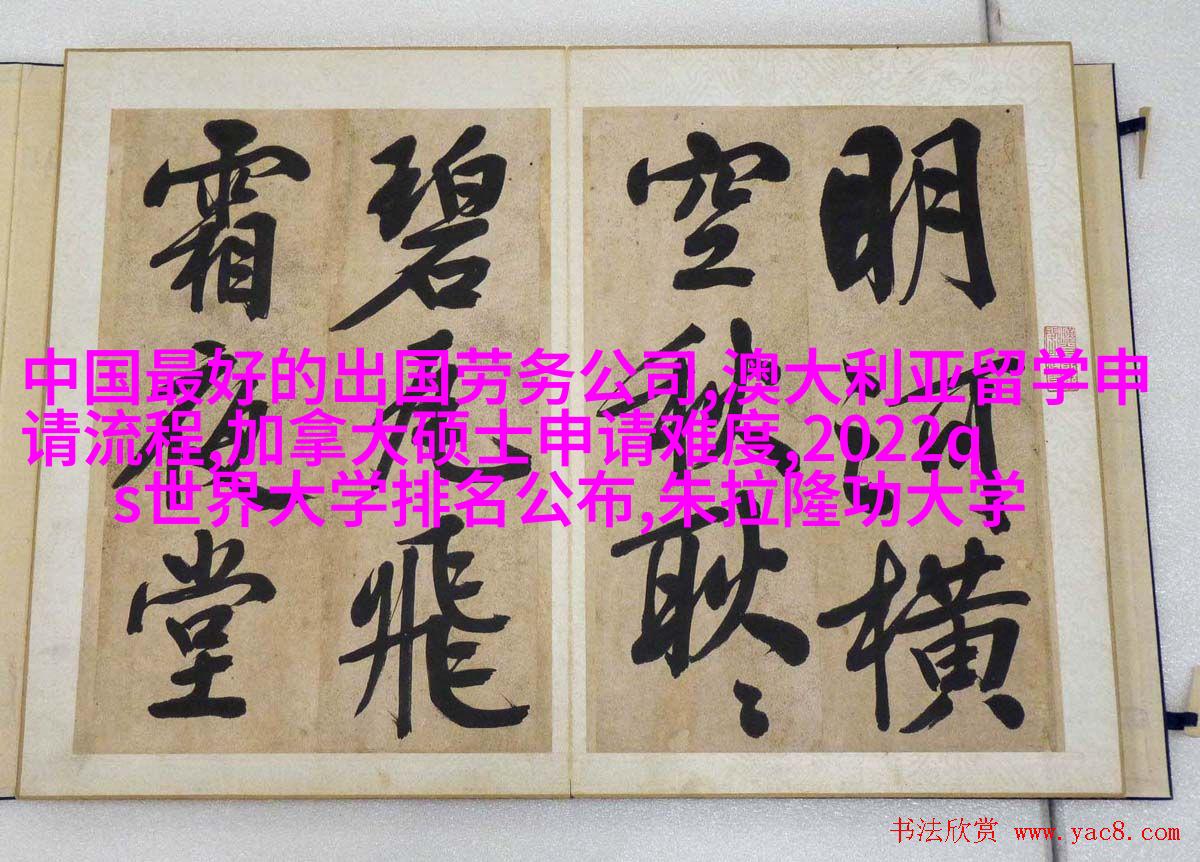 明河横
空秋耿々
碧瓦飛
霜夜堂
中国最好的出国劳务公司,澳大利亚留学申
请流程,加拿大硕士申请难度,2022q
s世界大学排名公布,朱拉隆功大学
书法欣赏 www.yac8.com